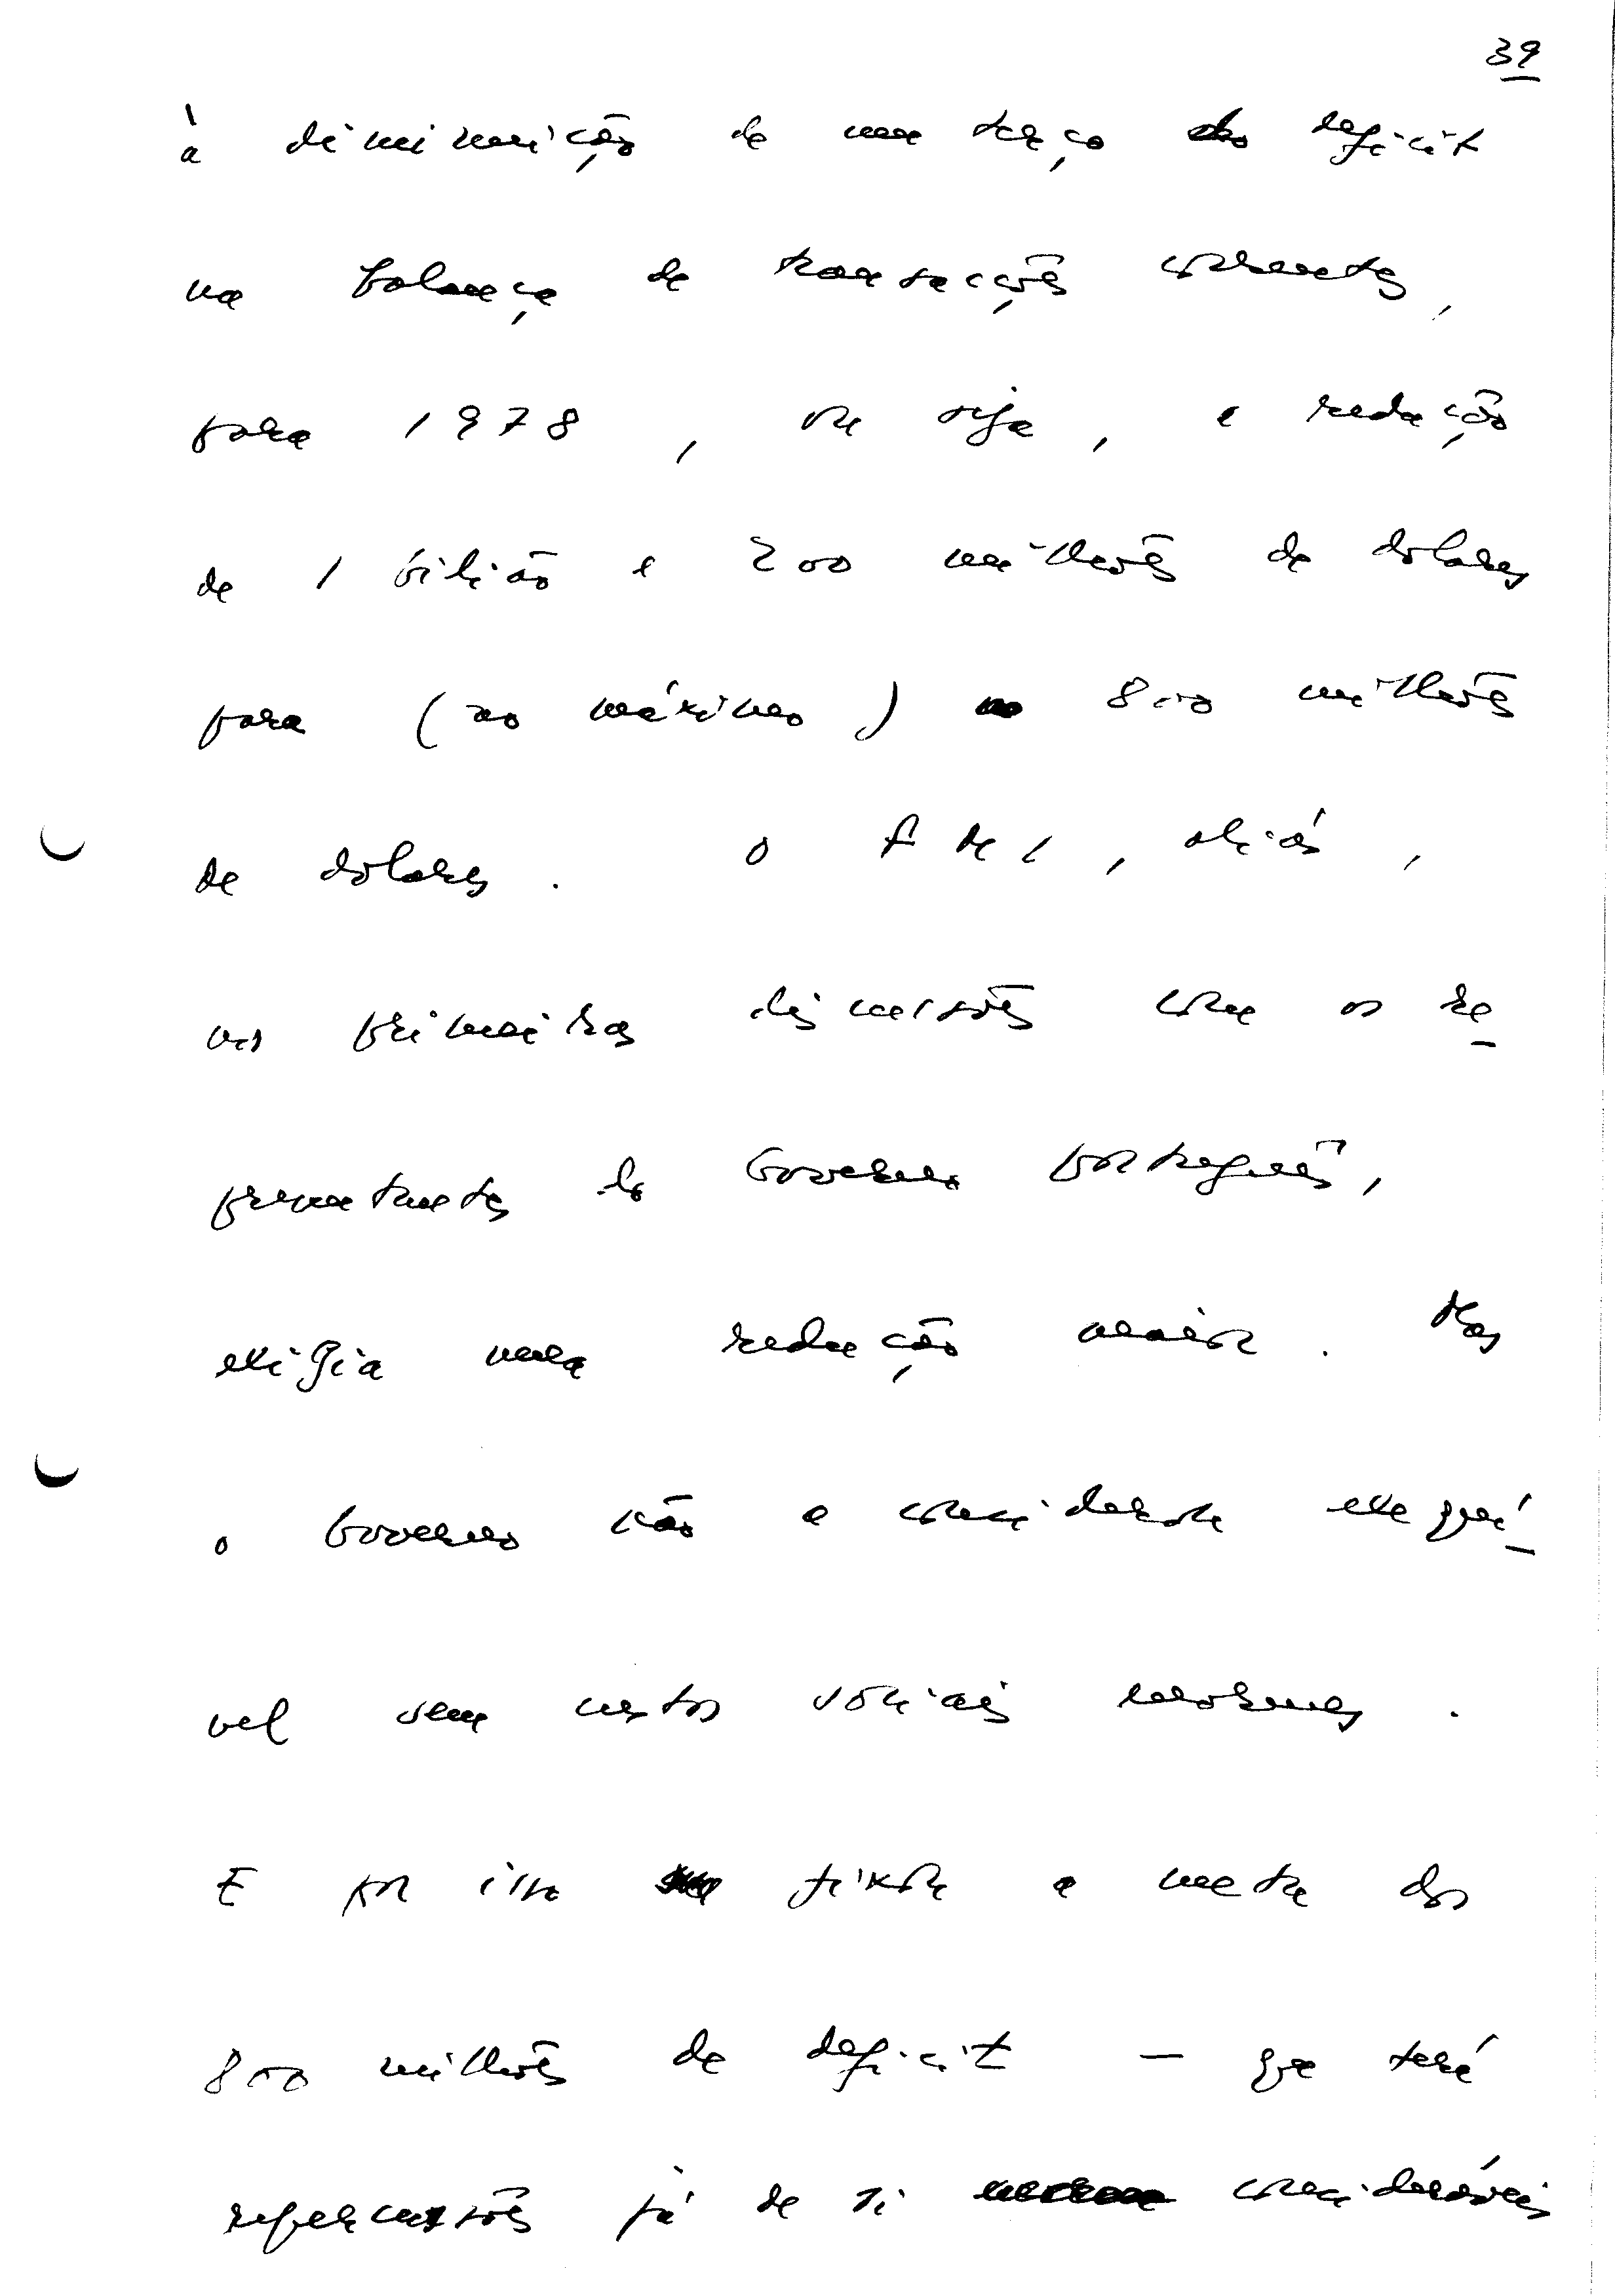 39
à diminuição de um terço do deficit
na balança de transacções correntes,
para 1978, ou seja, a redução
de 1 bilião e 200 milhões de dolares
para (ao máximo) 800 milhões
de dolares. O FMI, aliás,
nas primeiras discussões com os re
presentantes do Governo português,
exigia uma redução maior. Mas
o Governo não a considerou exequí
vel sem custos sociais enormes.
E por isso fixou a meta dos
800 milhões de deficit - que terá
repercussões já de si consideráveis